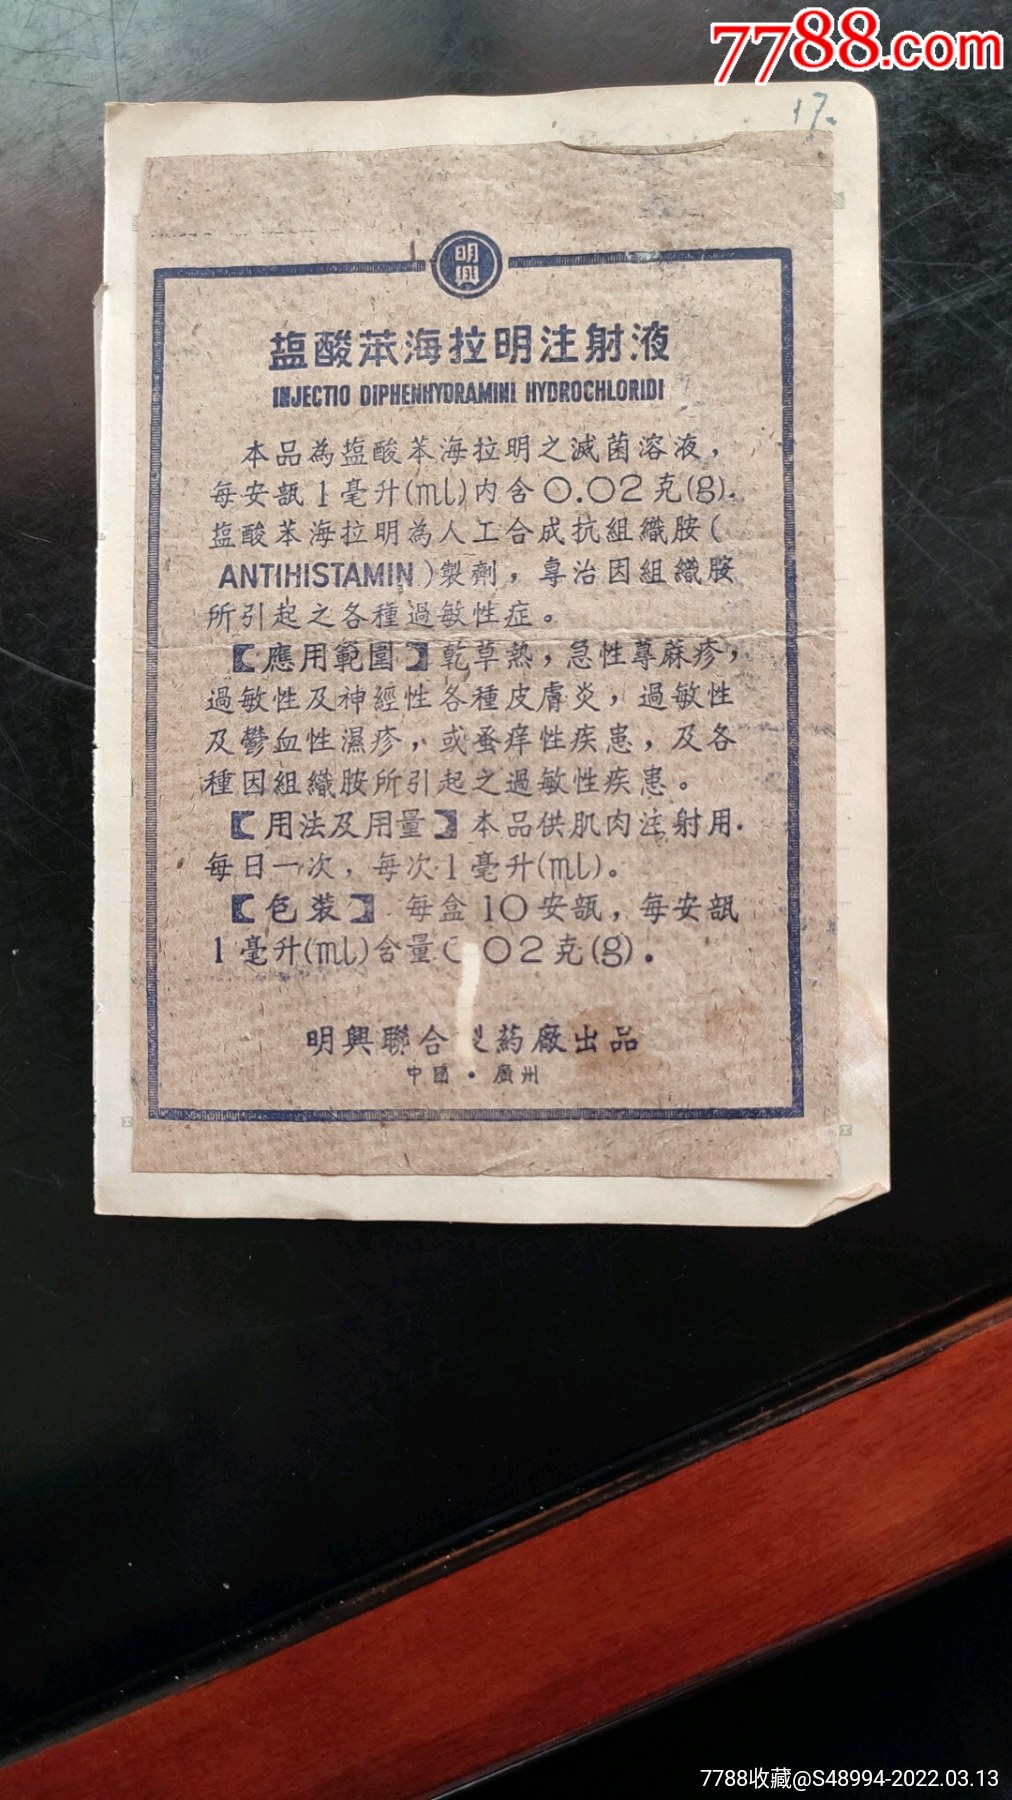 7788.com
17.
明興
塩酸苯海拉明注射液
INJECTIO DIPHENHYDRAMINI HYDROCHLORIDI
本品為塩酸苯海拉明之滅菌溶液，
每安瓿1毫升(ml)内含0.02克(g).
塩酸苯海拉明為人工合成抗組織胺(
ANTIHISTAMIN)製劑，專治因組織胺
所引起之各種過敏性症。
【應用範圍】乾草熱，急性蕁蔴疹，
過敏性及神經性各種皮膚炎，過敏性
及鬱血性濕疹，或蚤痒性疾患，及各
種因組織胺所引起之過敏性疾患。
【用法及用量】本品供肌肉注射用.
每日一次，每次1毫升(ml)。
【包装】每盒10安瓿，每安瓿
1毫升(ml)含量 02克(g)．
明興聯合製药廠出品
中國・廣州
7788收藏@S48994-2022.03.13